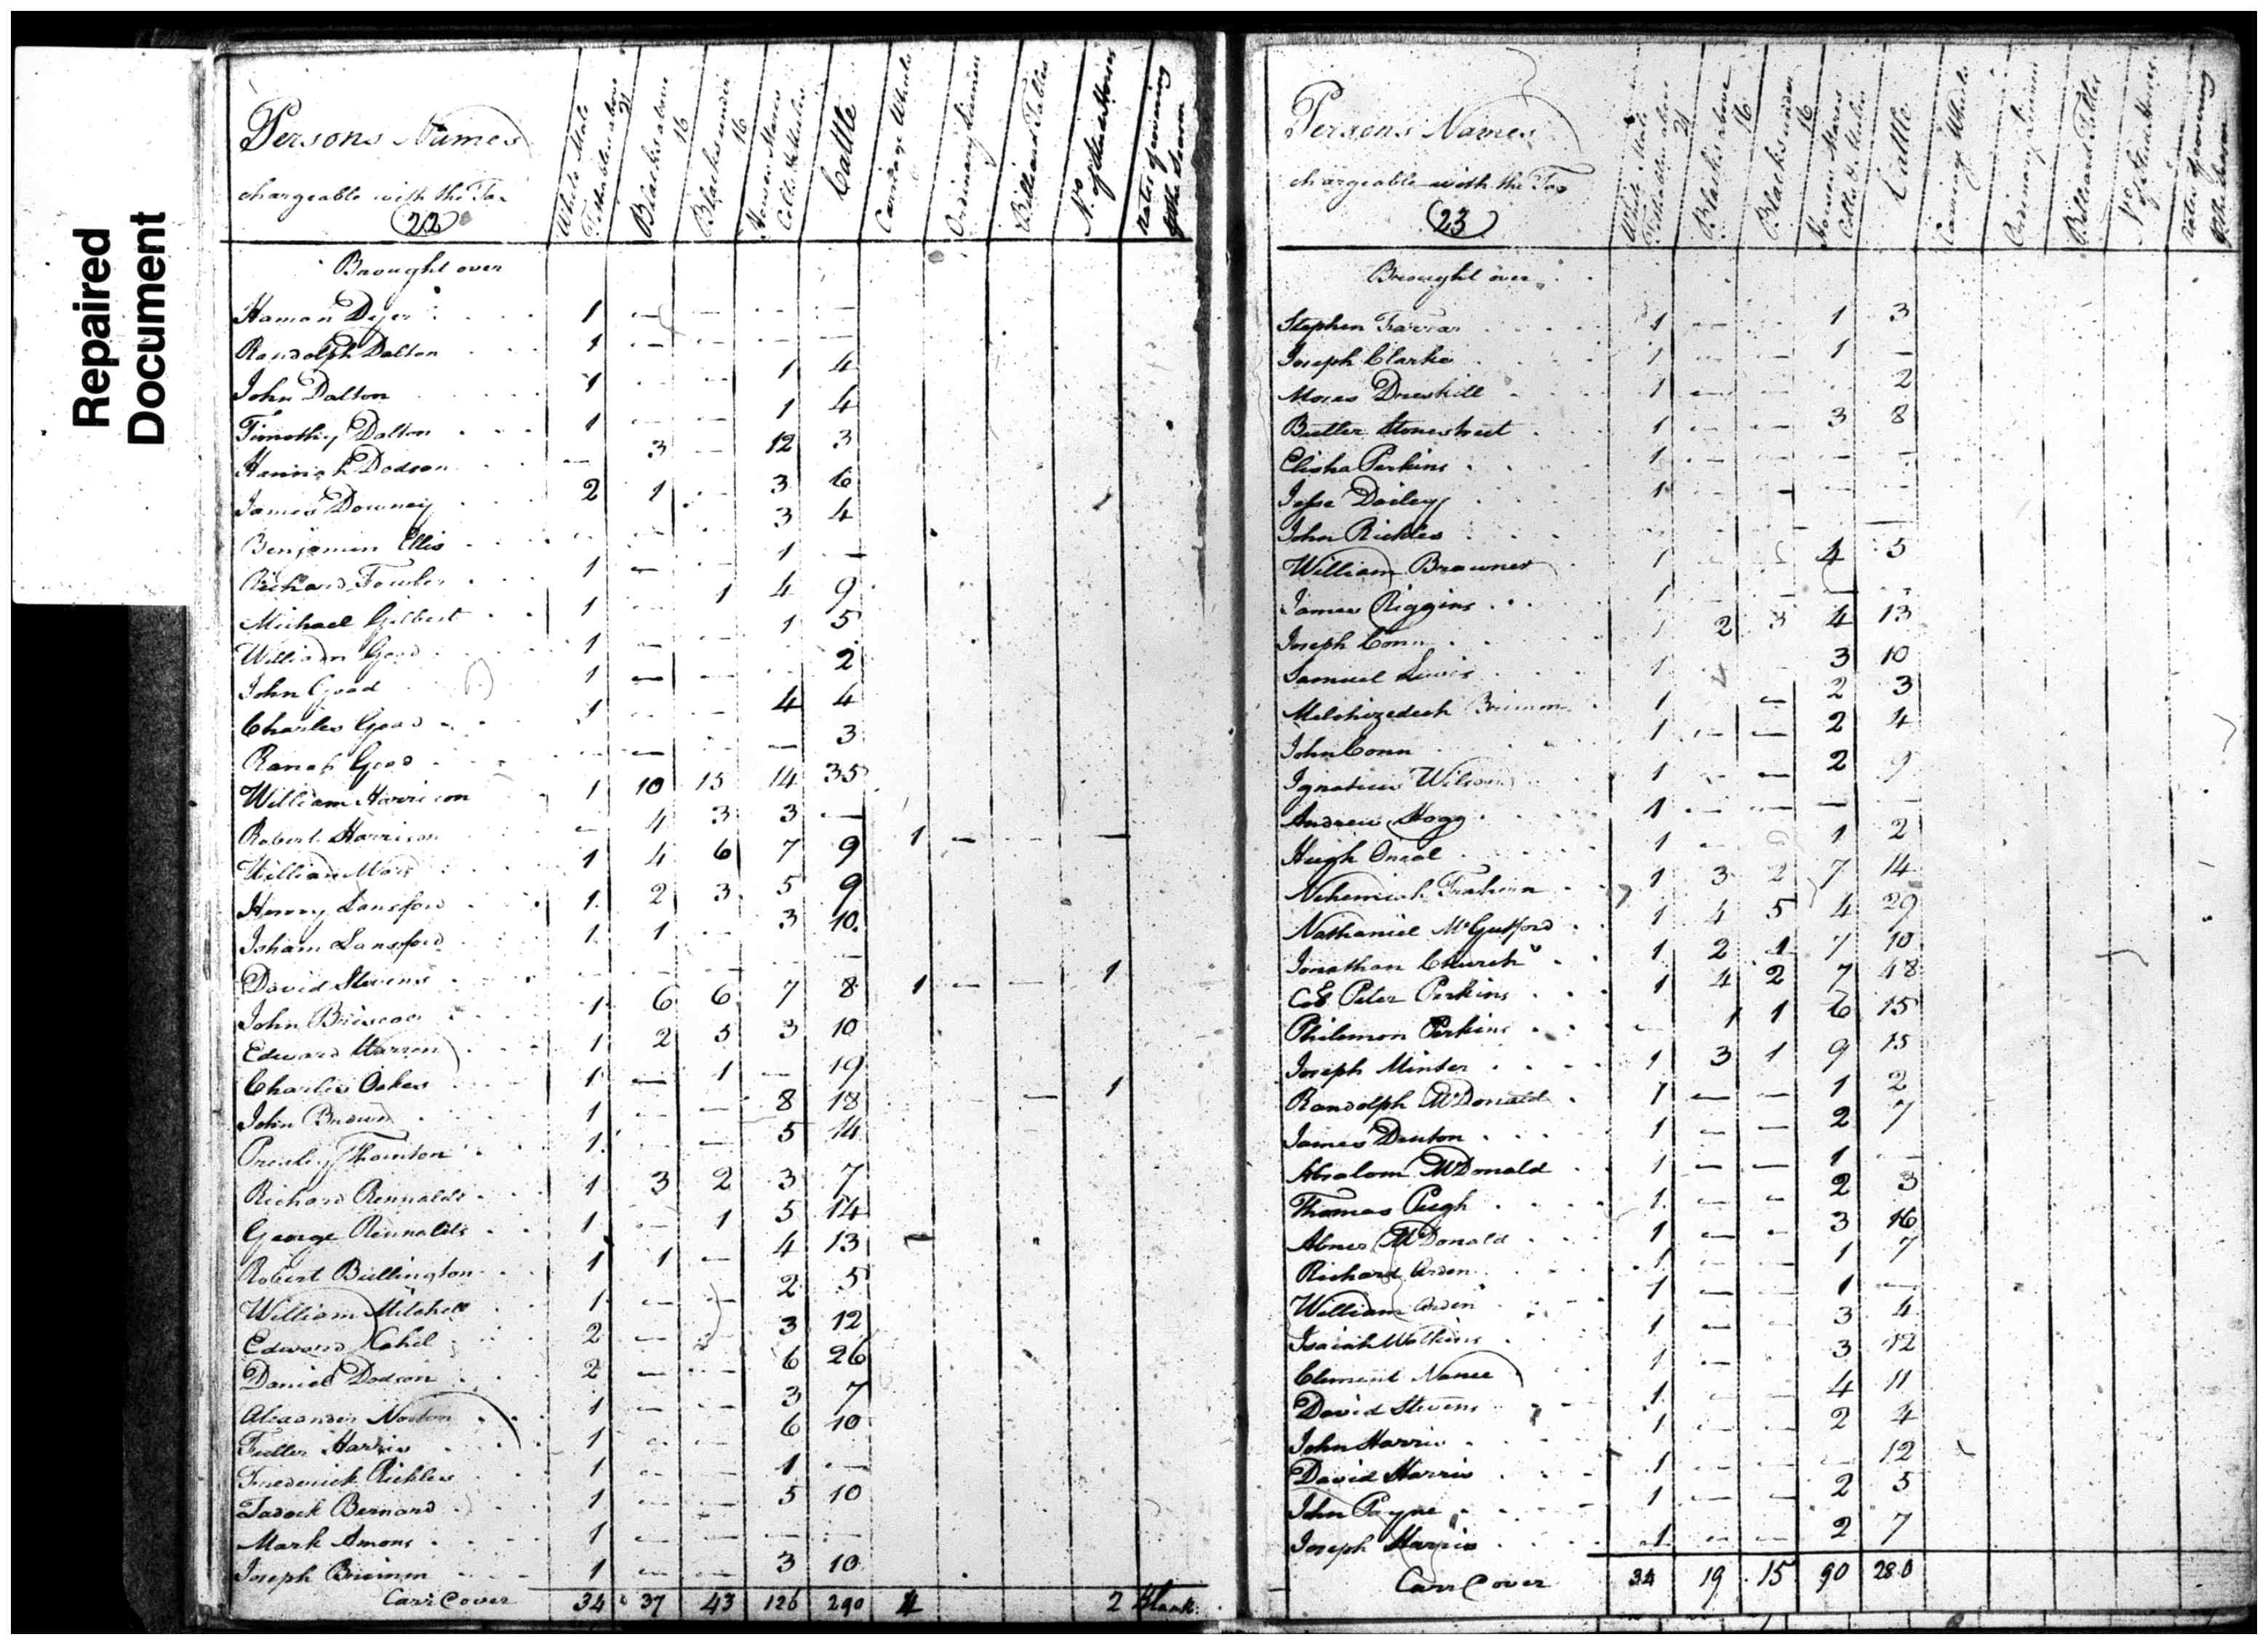 Repaired
Document
Persons Names
chargeable with the Tax
22
White Male Tithables above 21
Blacks above 16
Blacks under 16
Horses Mares Colts & Mules
Cattle
Carriage Wheels
Ordinary Licences
Billiard Tables
No. of Stud Horses
Rates of covering pr the Season
Brought over
Haman Dyer 1 — — — —
Randolph Dalton 1 — — — —
John Dalton 1 — — 1 4
Timothy Dalton 1 — — 1 4
Hannah Dodson — 3 — 12 3
James Downey 2 1 — 3 6
Benjamin Ellis 3 4
Richard Fowler 1 — 1 —
Michael Gilbert 1 — 1 4 9
William Good 1 — — 1 5
John Good 1 — — 2
Charles Good 1 — — 4 4
Ranah Good — — — — 3
William Harrison 1 10 15 14 35
Robert Harrison — 4 3 3 —
William Ware 1 4 6 7 9 1 — —
Henry Lansford 1 2 3 5 9
Isham Lansford 1 1 — 3 10
David Stevens — — — — —
John Briscoe 1 6 6 7 8 1 — — 1
Edward Warren 1 2 5 3 10
Charles Oakes 1 — 1 — 19
John Brown 1 — — 8 18 — 1
Presley Thornton 1 — — 5 14
Richard Rennalds 1 3 2 3 7
George Rennalds 1 — 1 5 14
Robert Bullington 1 1 — 4 13
William Mitchell 1 — — 2 5
Edward Cahel 2 — — 3 12
Daniel Dodson 2 — — 6 26
Alexander Norton 1 — — 3 7
Fuller Harris 1 — — 6 10
Frederick Rickles 1 — — 1 —
Zadock Bernard 1 — — 5 10
Mark Amons 1 — — — —
Joseph Brimm 1 — — 3 10
Carr'd over 34 37 43 126 290 4 2 Blank
Persons Names
chargeable with the Tax
23
White Male Tithables above 21
Blacks above 16
Blacks under 16
Horses Mares Colts & Mules
Cattle
Carriage Wheels
Ordinary Licences
Billiard Tables
No. of Stud Horses
Rates of covering pr the Season
Brought over
Stephen Farrar 1 — — 1 3
Joseph Clarke 1 — — 1 —
Moses Dreskill 1 — — 2
Butler Stonestreet 1 — — 3 8
Elisha Perkins 1 — — — —
Jesse Dailey 1 — — — —
John Rickles — —
William Brawner 1 — 4 5
James Riggins 1 — — — —
Joseph Conn 1 2 3 4 13
Samuel Lewis 1 3 10
Melchizedeck Brimm 1 — 2 3
John Conn 1 — — 2 4
Ignatius Wilson 1 — — 2 9
Andrew Hogg 1 — — — —
Hugh Oneal 1 — 1 2
Nehemiah Frahern 1 3 2 7 14
Nathaniel McGufford 1 4 5 4 29
Jonathan Church 1 2 1 7 10
Col Peter Perkins 1 4 2 7 48
Philemon Perkins — 1 1 6 15
Joseph Minter 1 3 1 9 15
Randolph McDonald 1 — — 1 2
James Denton 1 — — 2 7
Absalom McDonald 1 — — 1 —
Thomas Pugh 1 — — 2 3
Abner McDonald 1 — — 3 16
Richard Arden 1 1 7
William Arden 1 — — 1 —
Isaiah Watkins 1 — — 3 4
Clement Nance 1 — — 3 12
David Stevens 1 — — 4 11
John Harris 1 — — 2 4
David Harris 1 — — — 12
John Payne 1 — — 2 5
Joseph Harris 1 — — 2 7
Carr'd over 34 19 15 90 280